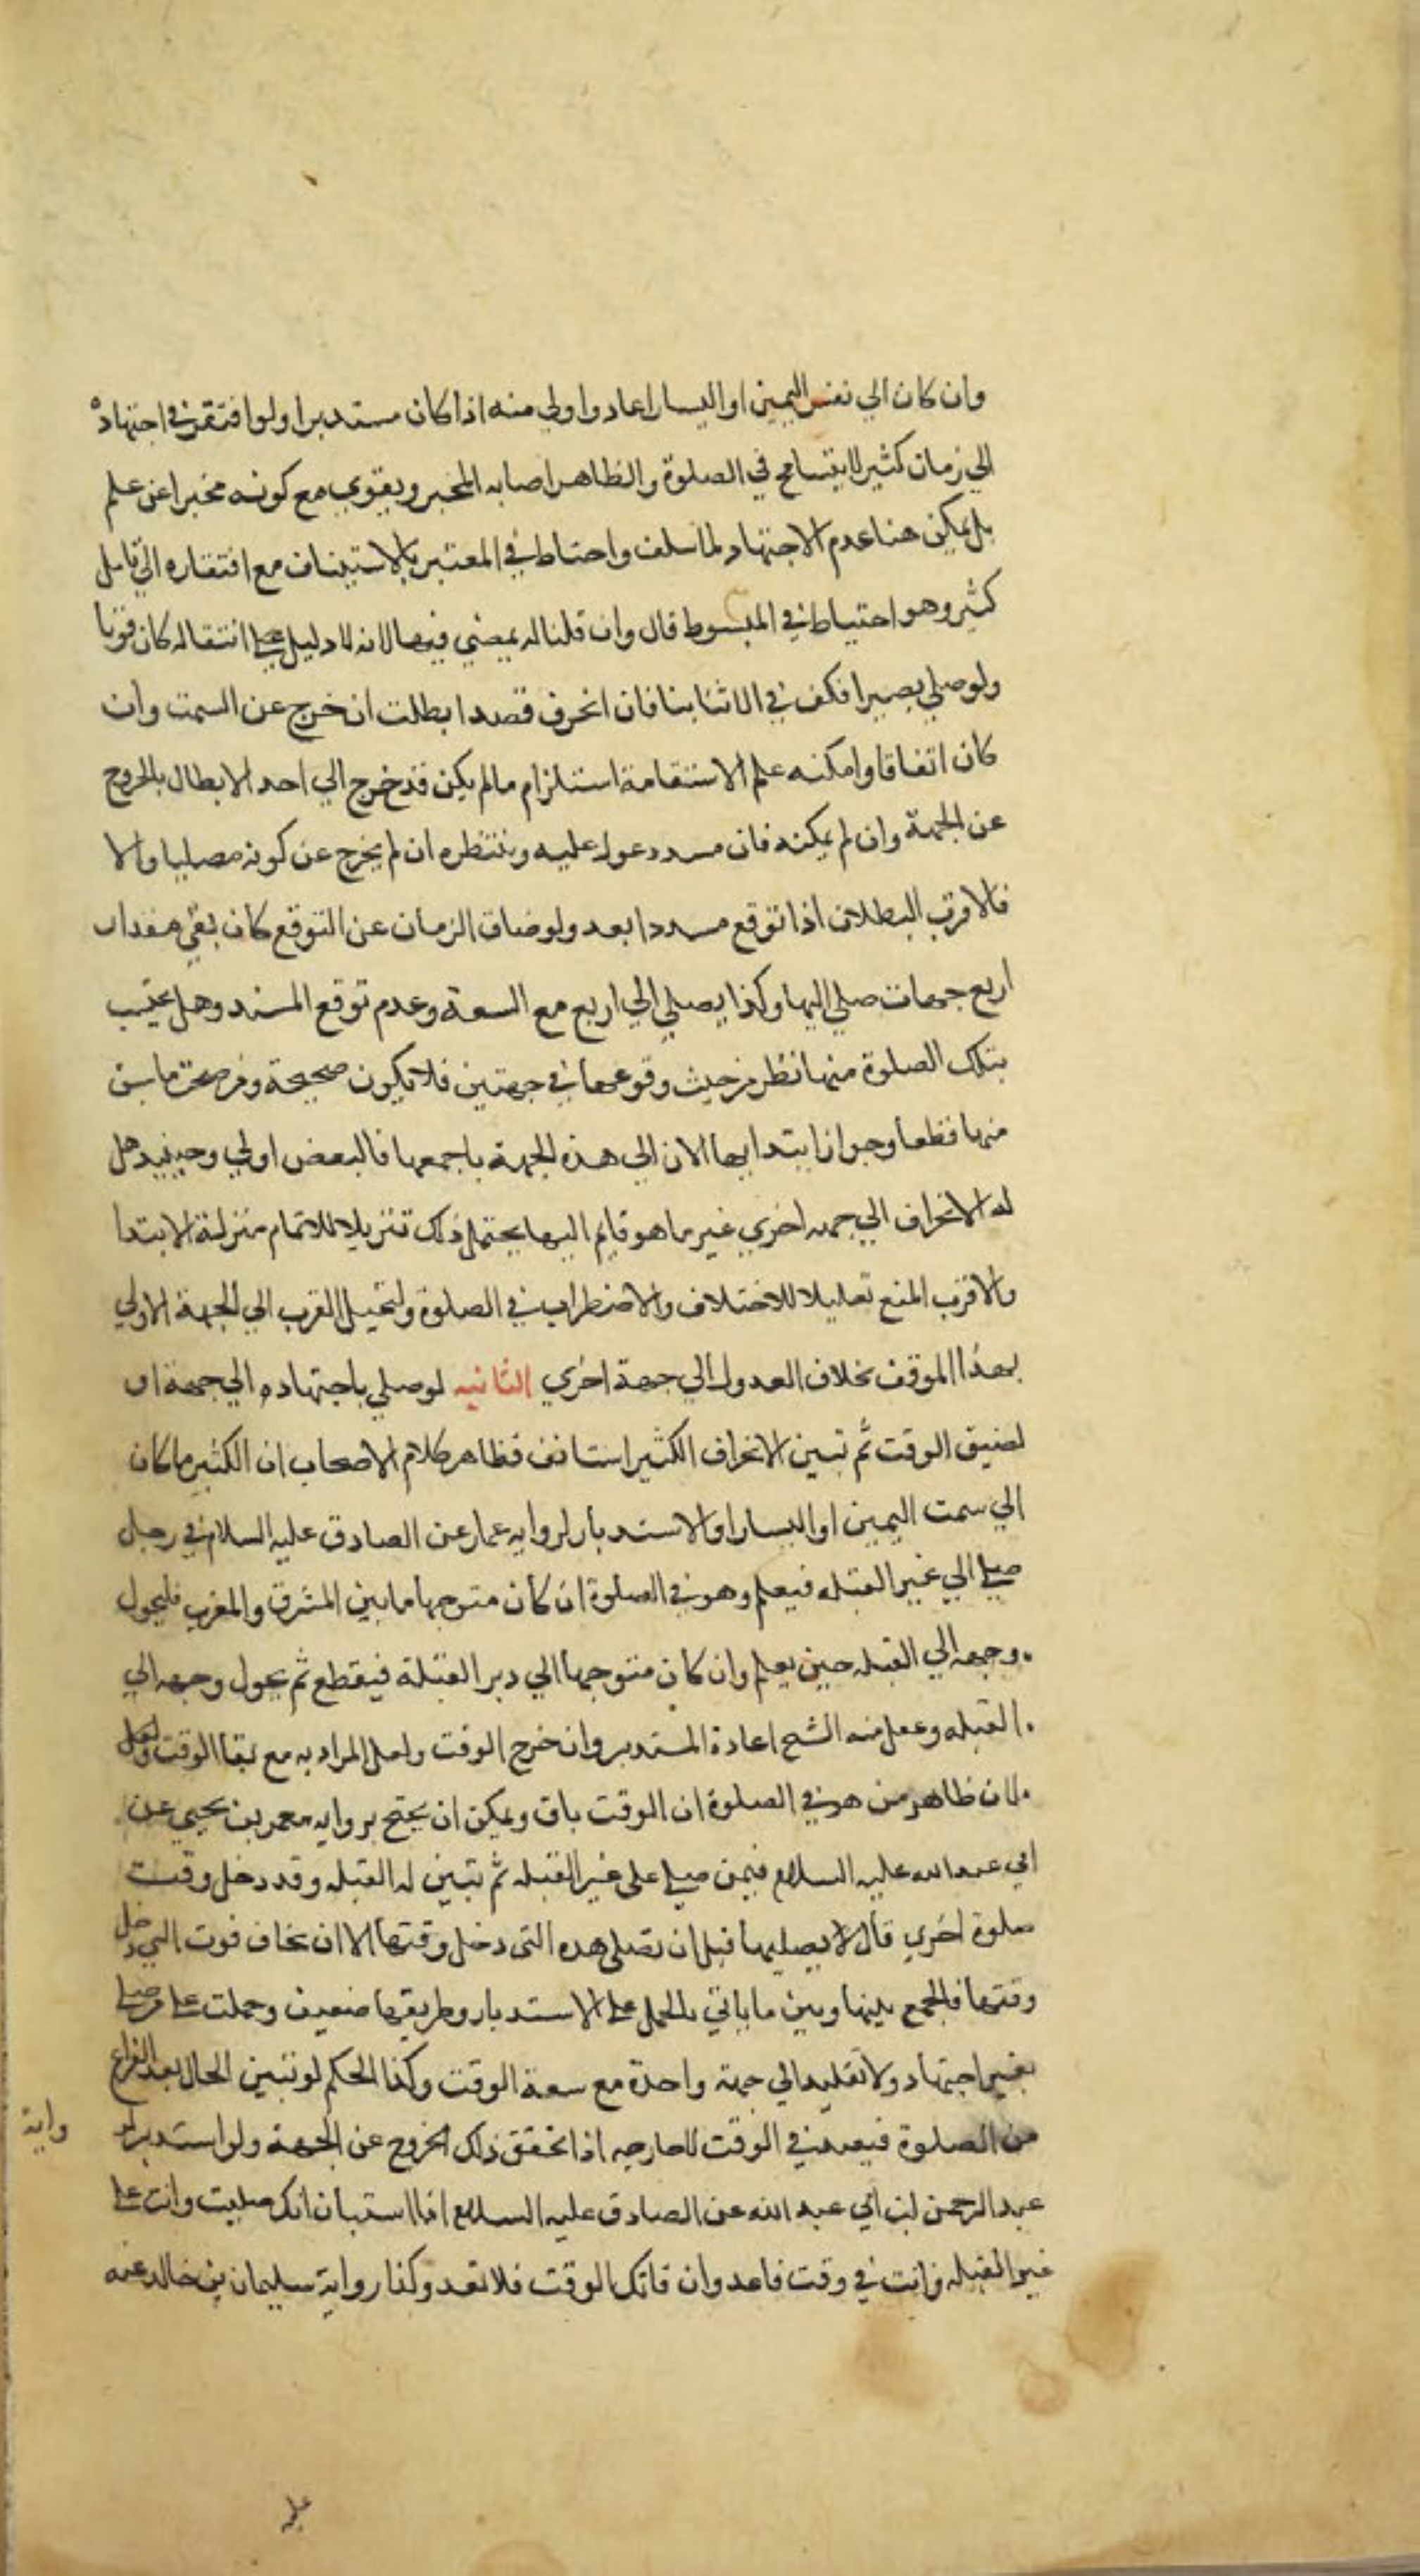 وان كان الي نفس اليمين او اليسار اعاد واولي منه اذا كان مستدبرا ولو افتقر في اجتهاده
الي زمان كثير لا يتسامح في الصلوة والظاهر اصابه المخبر ويقوي مع كونه مخبرا عن علم
بل يمكن هنا عدم الاجتهاد لما سلف واحتاط في المعتبر بالاستيناف مع افتقاره الي تامل
كثير وهو احتياط في المبسوط قال وان قلنا له يمضي فيها لانه لا دليل علي انتقاله كان قويا
ولو صلي بصيرا فكف في الاثنا بنا فان انحرف قصدا بطلت ان خرج عن السمت وان
كان اتفاقا وامكنه علم الاستقامة استلزام مالم يكن قد خرج الي احد الابطال بالخروج
عن الجهة وان لم يمكنه فان مسدد عول عليه وينتظره ان لم يخرج عن كونه مصليا والا
فالاقرب البطلان اذا توقع مسددا بعد ولو ضاق الزمان عن التوقع كان بقي مقدار
اربع جهات صلي اليها وكذا يصلي الي اربع مع السعة وعدم توقع المسدد وهل يحتسب
بتلك الصلوة منها نظر من حيث وقوعها في جهتين فلا تكون صحيحة ومن صحة ما سبق
منها قطعا وجواز ابتدايها الان الي هذه الجهة باجمعها فالبعض اولي وحينيذ هل
له الانحراف الي جهه اخري غير ما هو قايم اليها يحتمل ذلك تنزيلا للاتمام منزلة الابتدا
والاقرب المنع تعليلا للاختلاف والاضطراب في الصلوة ولتخيل القرب الي الجهة الاولي
بهذا الموقف بخلاف العدول الي جهة اخري الثانيه لو صلي باجتهاده الي جهة او
لضيق الوقت ثم تبين الانحراف الكثير استانف فظاهر كلام الاصحاب ان الكثير ما كان
الي سمت اليمين او اليسار او الاستدبار لروايه عمار عن الصادق عليه السلام في رجل
صلي الي غير القبله فيعلم وهو في الصلوة ان كان متوجها ما بين المشرق والمغرب فليحول
وجهه الي القبله حين يعلم وان كان متوجها الي دبر القبلة فيقطع ثم يحول وجهه الي
القبله وعقل منه الشيخ اعادة المستدبر وان خرج الوقت ولعل المراد به مع بقا الوقت ولعل
لان ظاهر من هو في الصلوة ان الوقت باق ويمكن ان يحتج بروايه معمر بن يحيي عن
ابي عبد الله عليه السلام فيمن صلي علي غير القبله ثم تبين له القبله وقد دخل وقت
صلوة اخري قال لا يصليها قبل ان يصلي هذه التي دخل وقتها الا ان يخاف فوت التي دخل
وقتها فالجمع بينها وبين ما ياتي بالحمل علي الاستدبار وطريقها ضعيف وحملت علي من صلي
بغير اجتهاد ولا تقليد الي جهة واحدة مع سعة الوقت وكذا الحكم لو تبين الحال بعد الفراغ
من الصلوة فيعيد في الوقت لا خارجه اذا تحقق ذلك الخروج عن الجهة ولو استدبر لر
واية
عبد الرحمن ابن ابي عبد الله عن الصادق عليه السلام اذا استبان انك صليت وانت علي
غير القبله وانت في وقت فاعد وان فاتك الوقت فلا تعد وكذا رواية سليمان بن خالد عنه